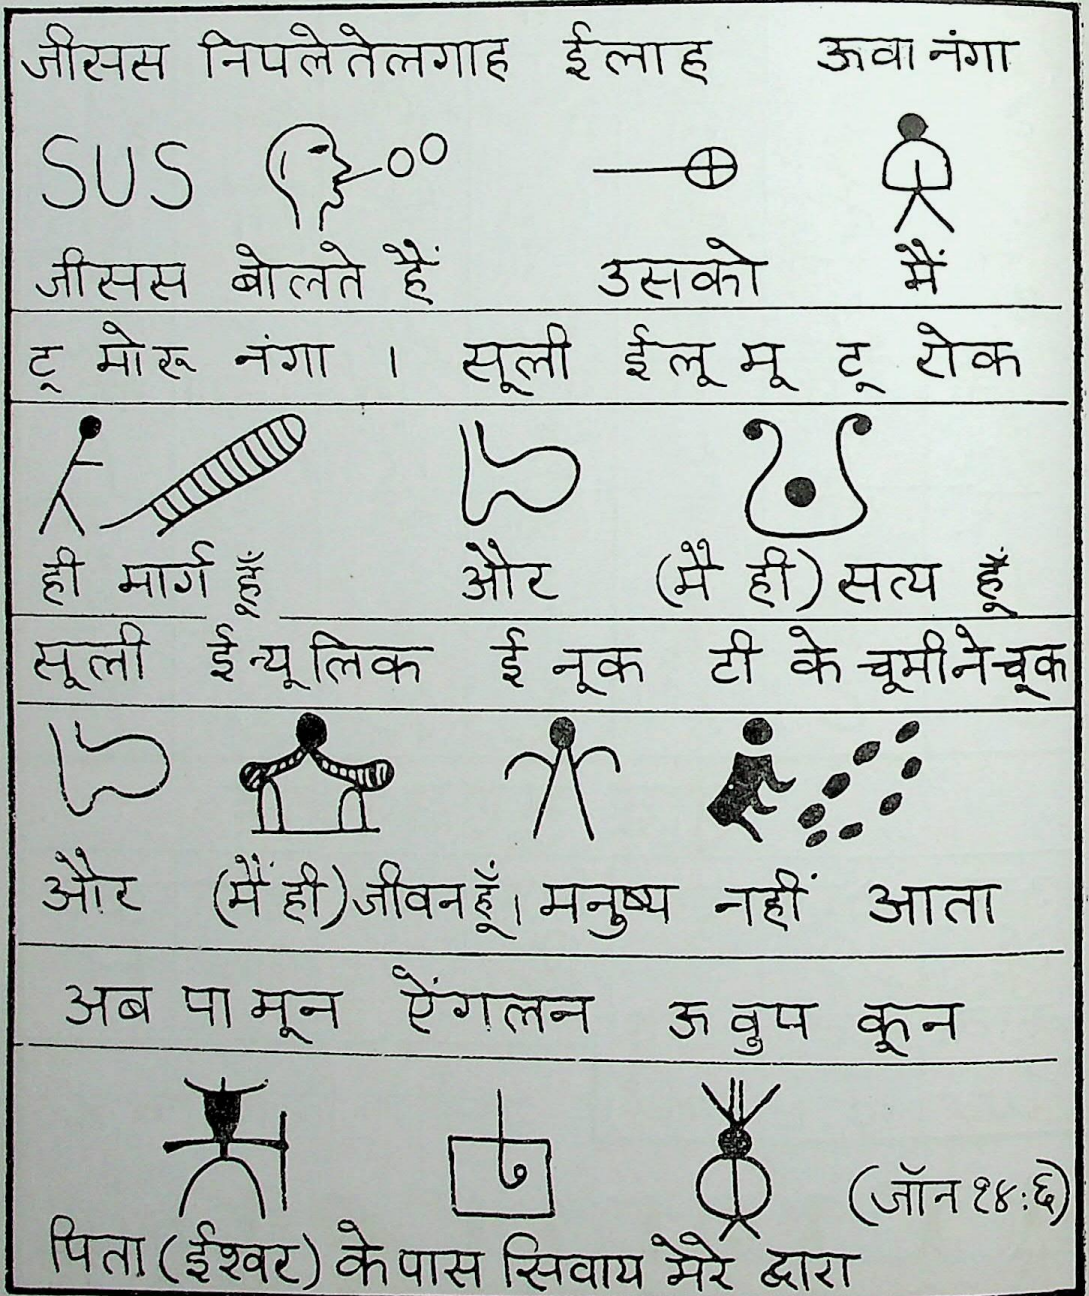 जीसस निपलेतेलगाह ईलाह ऊवा नंगा
SUS
जीसस बोलते हैं उसको मैं
टू मोरू नंगा । सूली ईलू मू टू रोक
ही मार्ग हूँ और (मै ही) सत्य हूँ
सूली ईन्यूलिक ई नूक टी के चूमीनेचूक
और (मैं ही) जीवन हूँ। मनुष्य नहीं आता
अब पा मून ऐंगलन ऊ वुप कून
(जॉन १४:६)
पिता (ईश्वर) के पास सिवाय मेरे द्वारा